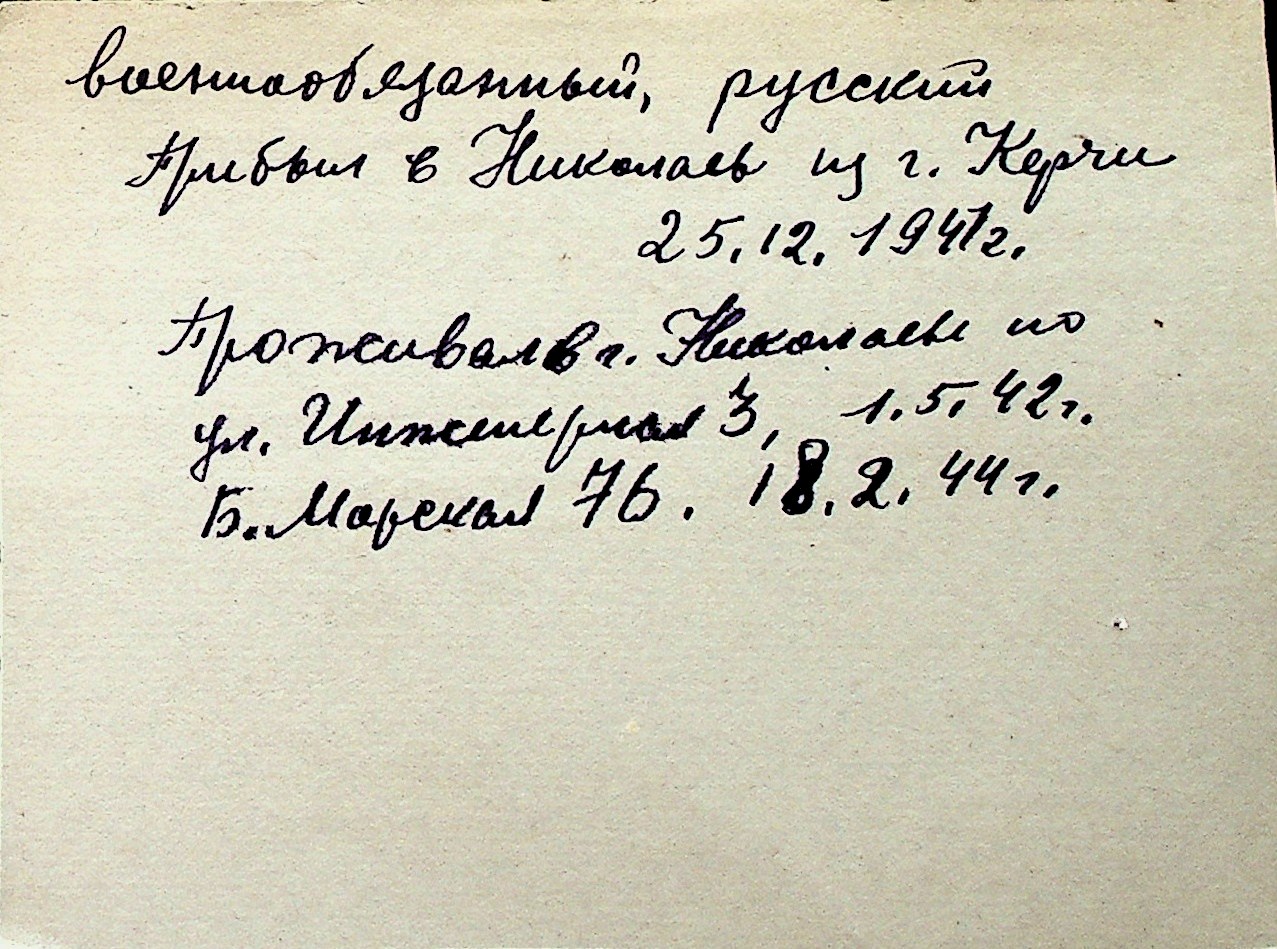 военнообязанный, русский
Прибыл в Николаев из г. Керчи
25.12.1941г.
Проживал в г. Николаеве по
ул. Инженерная 3, 1.5.42г.
Б. Морская 76. 18.2.44г.